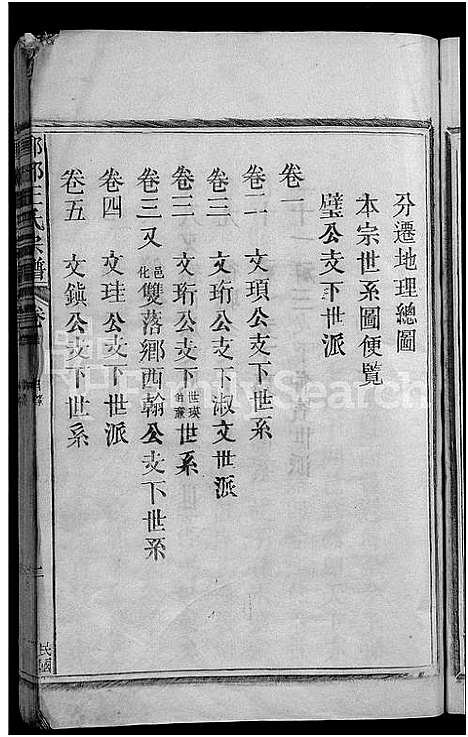 分遷地理總圖
本宗世系圖便覧
璧公支下世派
卷一
卷二 文頊公支下世系
卷三 文珩公支下淑文世派
卷三 文珩公支下世瑛世系
卷三又 邑化雙落鄉西翰公支下世系
卷四 文珪公支下世派
卷五 文鎮公支下世系
王氏宗譜
卷
二
民國
FamilySearch